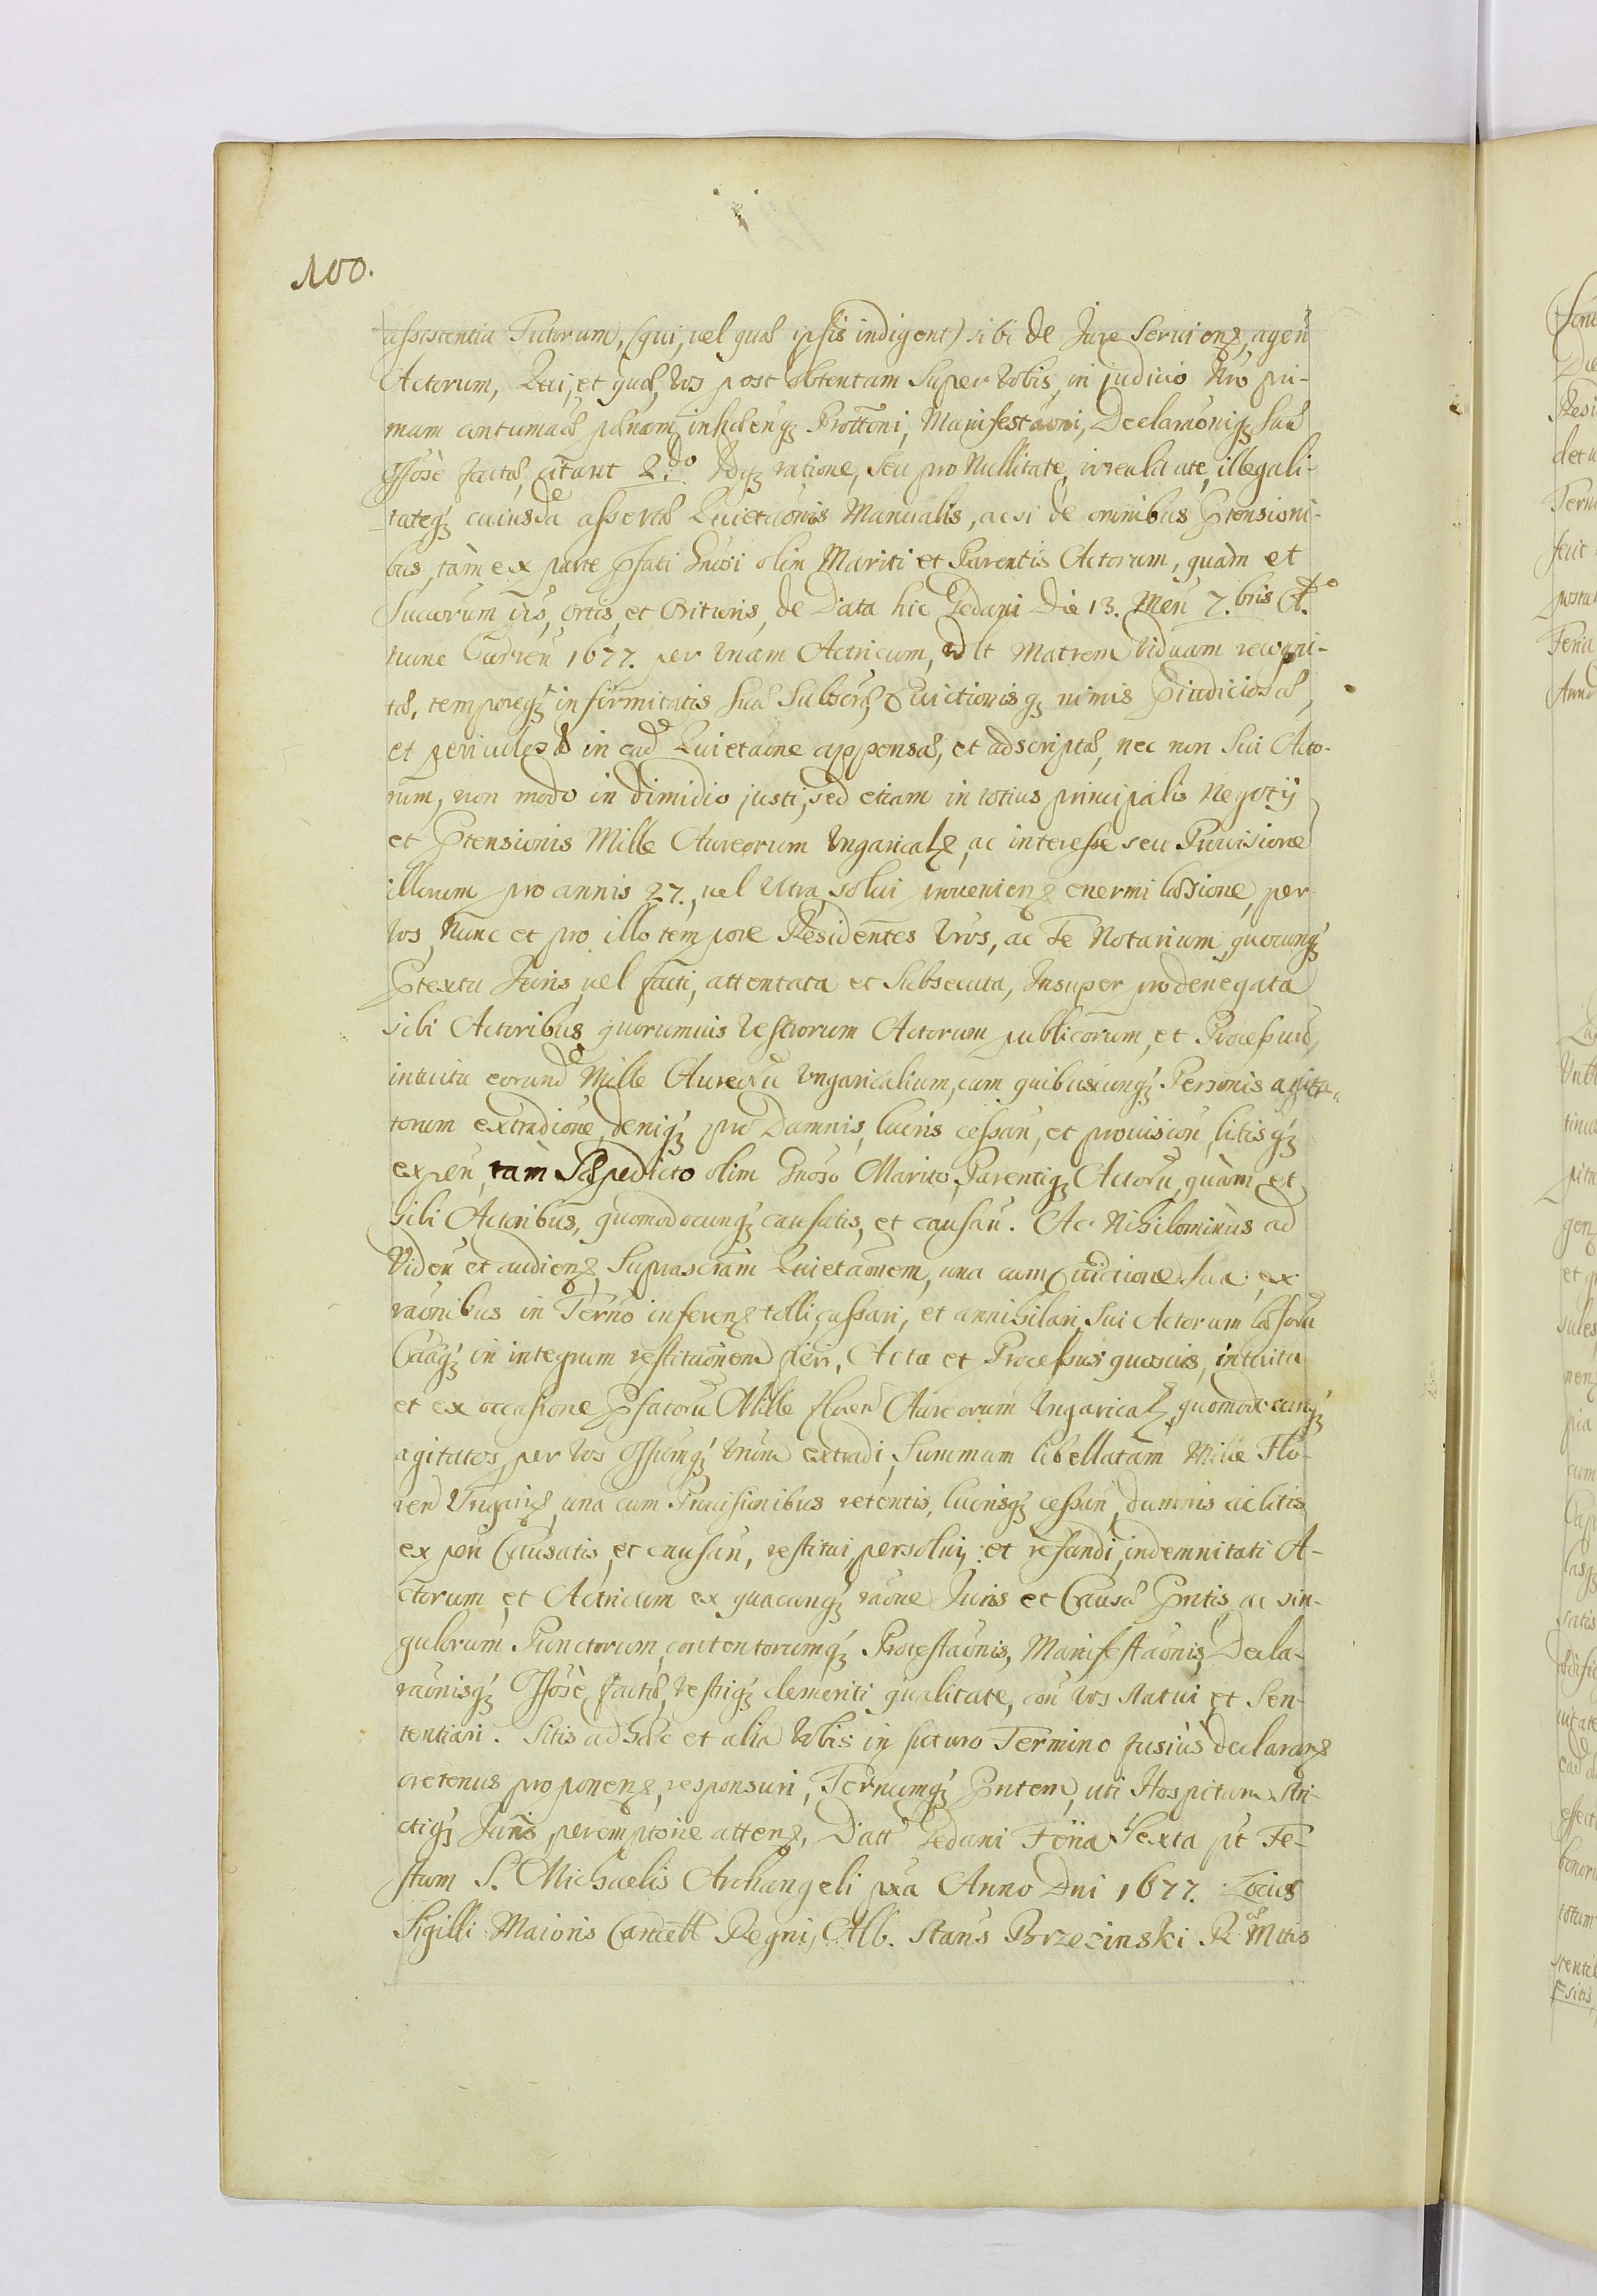 100.
assistentia Tutorum, (qui, uel quos ipsis indigent) sibi de Jure Seruienz, agen
Actorum, Qui, et quae, Vos post obtentam super Vobis, in judicio Nro pri-
mam contumaciae paenam, inhaerenq Prottoni, Manifestaoni, Declaraoniq suae
Offosè factae, citant 2.do Idq ratione, seu pro Nullitate, irreulitate, illegali-
tateq cuiusdae assertae Quietaonis Manualis, acsi de omnibus Ptensioni-
bus, tàm ex parte Pfati Gnosi olim Mariti et Parentis Actorum, quàm et
Sucorum eius, ortis, et Orituris, de Data hic Gedani Die 13. Men 7.bris Ao
nunc Curren 1677. per Vnam Actricum, vdlt Matrem Viduam recogni-
tae, temporeq infirmitatis suae Subscrae, Euictionisq nimis Piudiciosae,
et periculosae in ead Quietaone appensae, et adscriptae, nec non Sui Acto-
rum, non modo in dimidio justi, sed etiam in totius principalis Negotij
et Ptensionis Mille Aureorum Vngaricalz, ac interesse seu Prouisione
illorum pro annis 27. uel Vltra, solui inuenienz enermi laesione, per
Vos Nunc et pro illo tempore Residentes Vros, ac Te Notarium, quocunq
Ptextu Juris, uel facti, attentata et Subsecuta, Insuper pro denegata
sibi Actoribus, quorumuis Vestrorum Actorum publicorum, et Processuu,
intuitu eorund Mille Aureoru Vngaricalium, cum quibuscunq Personis agita-
torum extradione, deniq pro Damnis, lucris cessan, et prouision, litisq
expen, tàm Saepedicto olim Gnoso Marito, Parentiq Actoru, quàm et
sibi Actoribus, quomodocunq causatis, et causan. Ac Nihilominùs ad
Viden et audienz, Suprascram Quietaonem, una cum Euictione sua, ex
raonibus in Terno inferenz tolli, cassari, et annihilari, Sui Actorum laesoru
Caaq in integrum restituonem fieri, Acta et Processus quosuis, intuitu
et ex occasione Pfatoru Mille floren Aureorum Vngaricalz, quomodocunq
agitatos, per Vos Offiumq Vrum extradi, Summam libellatam Mille Flo-
ren Vngariz, una cum Prouisionibus retentis, lucrisq cessan, damnis ac litis
expen Causatis et causan, restitui, persolui, et refundi, indemnitati A-
ctorum et Actricum ex quacunq raone Juris et Causae Pntis, ac sin-
gulorum Punctorum, contentorumq Protestaonis, Manifestaonis, Decla-
raonisq Offosè factae, Vestriq demeriti qualitate, con Vos statui, et Sen-
tentiari. Sitis ad haec et alia Vobis in futuro Termino fusiùs declaranz
oretenus proponenz, responsuri, Ternumq Pntem, uti Hospitum stri-
ctiq Juris, peremptorie attenz, Datt Gedani Feria Sexta pt Fe-
stum S. Michaelis Archangeli pxa Anno Dni 1677. Locus
Sigilli Maioris Cancell Regni, Alb. Stans Brzezinski R. Mttis